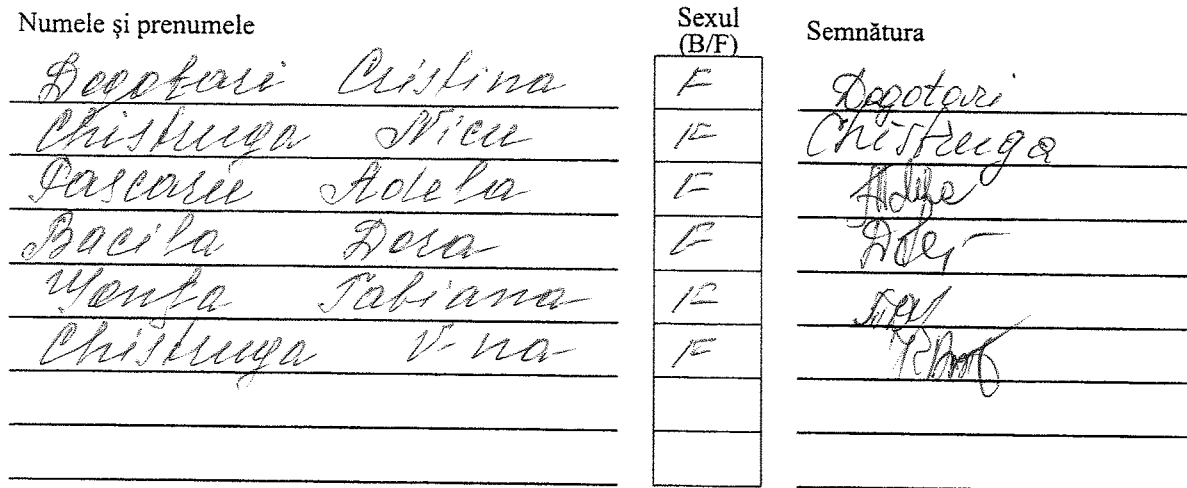 Numele și prenumele Sexul (B/F) Semnătura
Dogotari Cristina F Dogotari
Chistruga Nicu F Chistruga
Pascaru Adela F
Bacila Dora F
Tabiana F
Chistruga V-na F